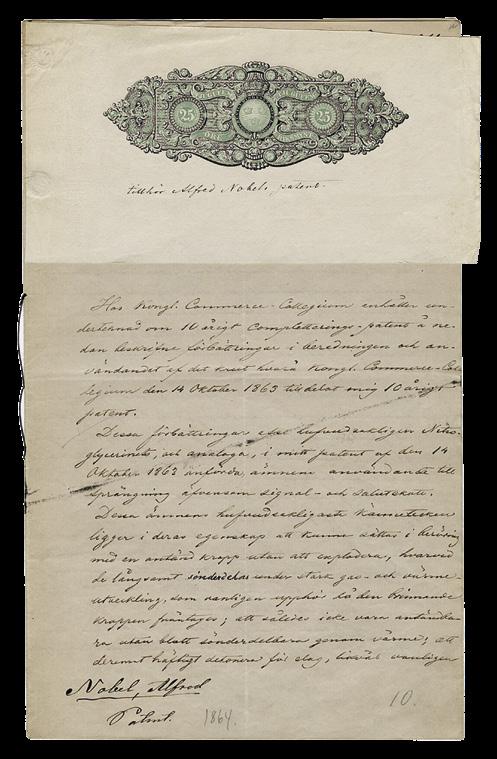 25 25
tillhör Alfred Nobels patent.
Hos Kongl. Commerce-Collegium anhåller un-
dertecknad om 10 årigt Completterings-patent å ne-
dan beskrifne förbättringar i beredningen och an-
vändandet af det krut hvarå Kongl. Commerce-Col-
legium den 14 Oktober 1863 tilldelat mig 10 årigt
patent.
Dessa förbättringar afse hufvudsakligen Nitro-
glycerinets, och analoga, i mitt patent af den 14
Oktober 1863 anförda, ämnens användande till
sprängning äfvensom signal- och salutskott.
Dessa ämnens hufvudsakligaste kännetecken
ligger i deras egenskap att kunna sättas i beröring
med en antänd kropp utan att explodera, hvarvid
de långsamt sönderdelas under stark gas- och värme-
utveckling, som vanligen upphör då den brinnande
kroppen fråntages; att således icke vara antändba-
ra utan blott sönderdelbara genom värme; att
deremot häftigt detonera för slag, likväl vanligen
Nobel, Alfred
Patent. 1864.
10.